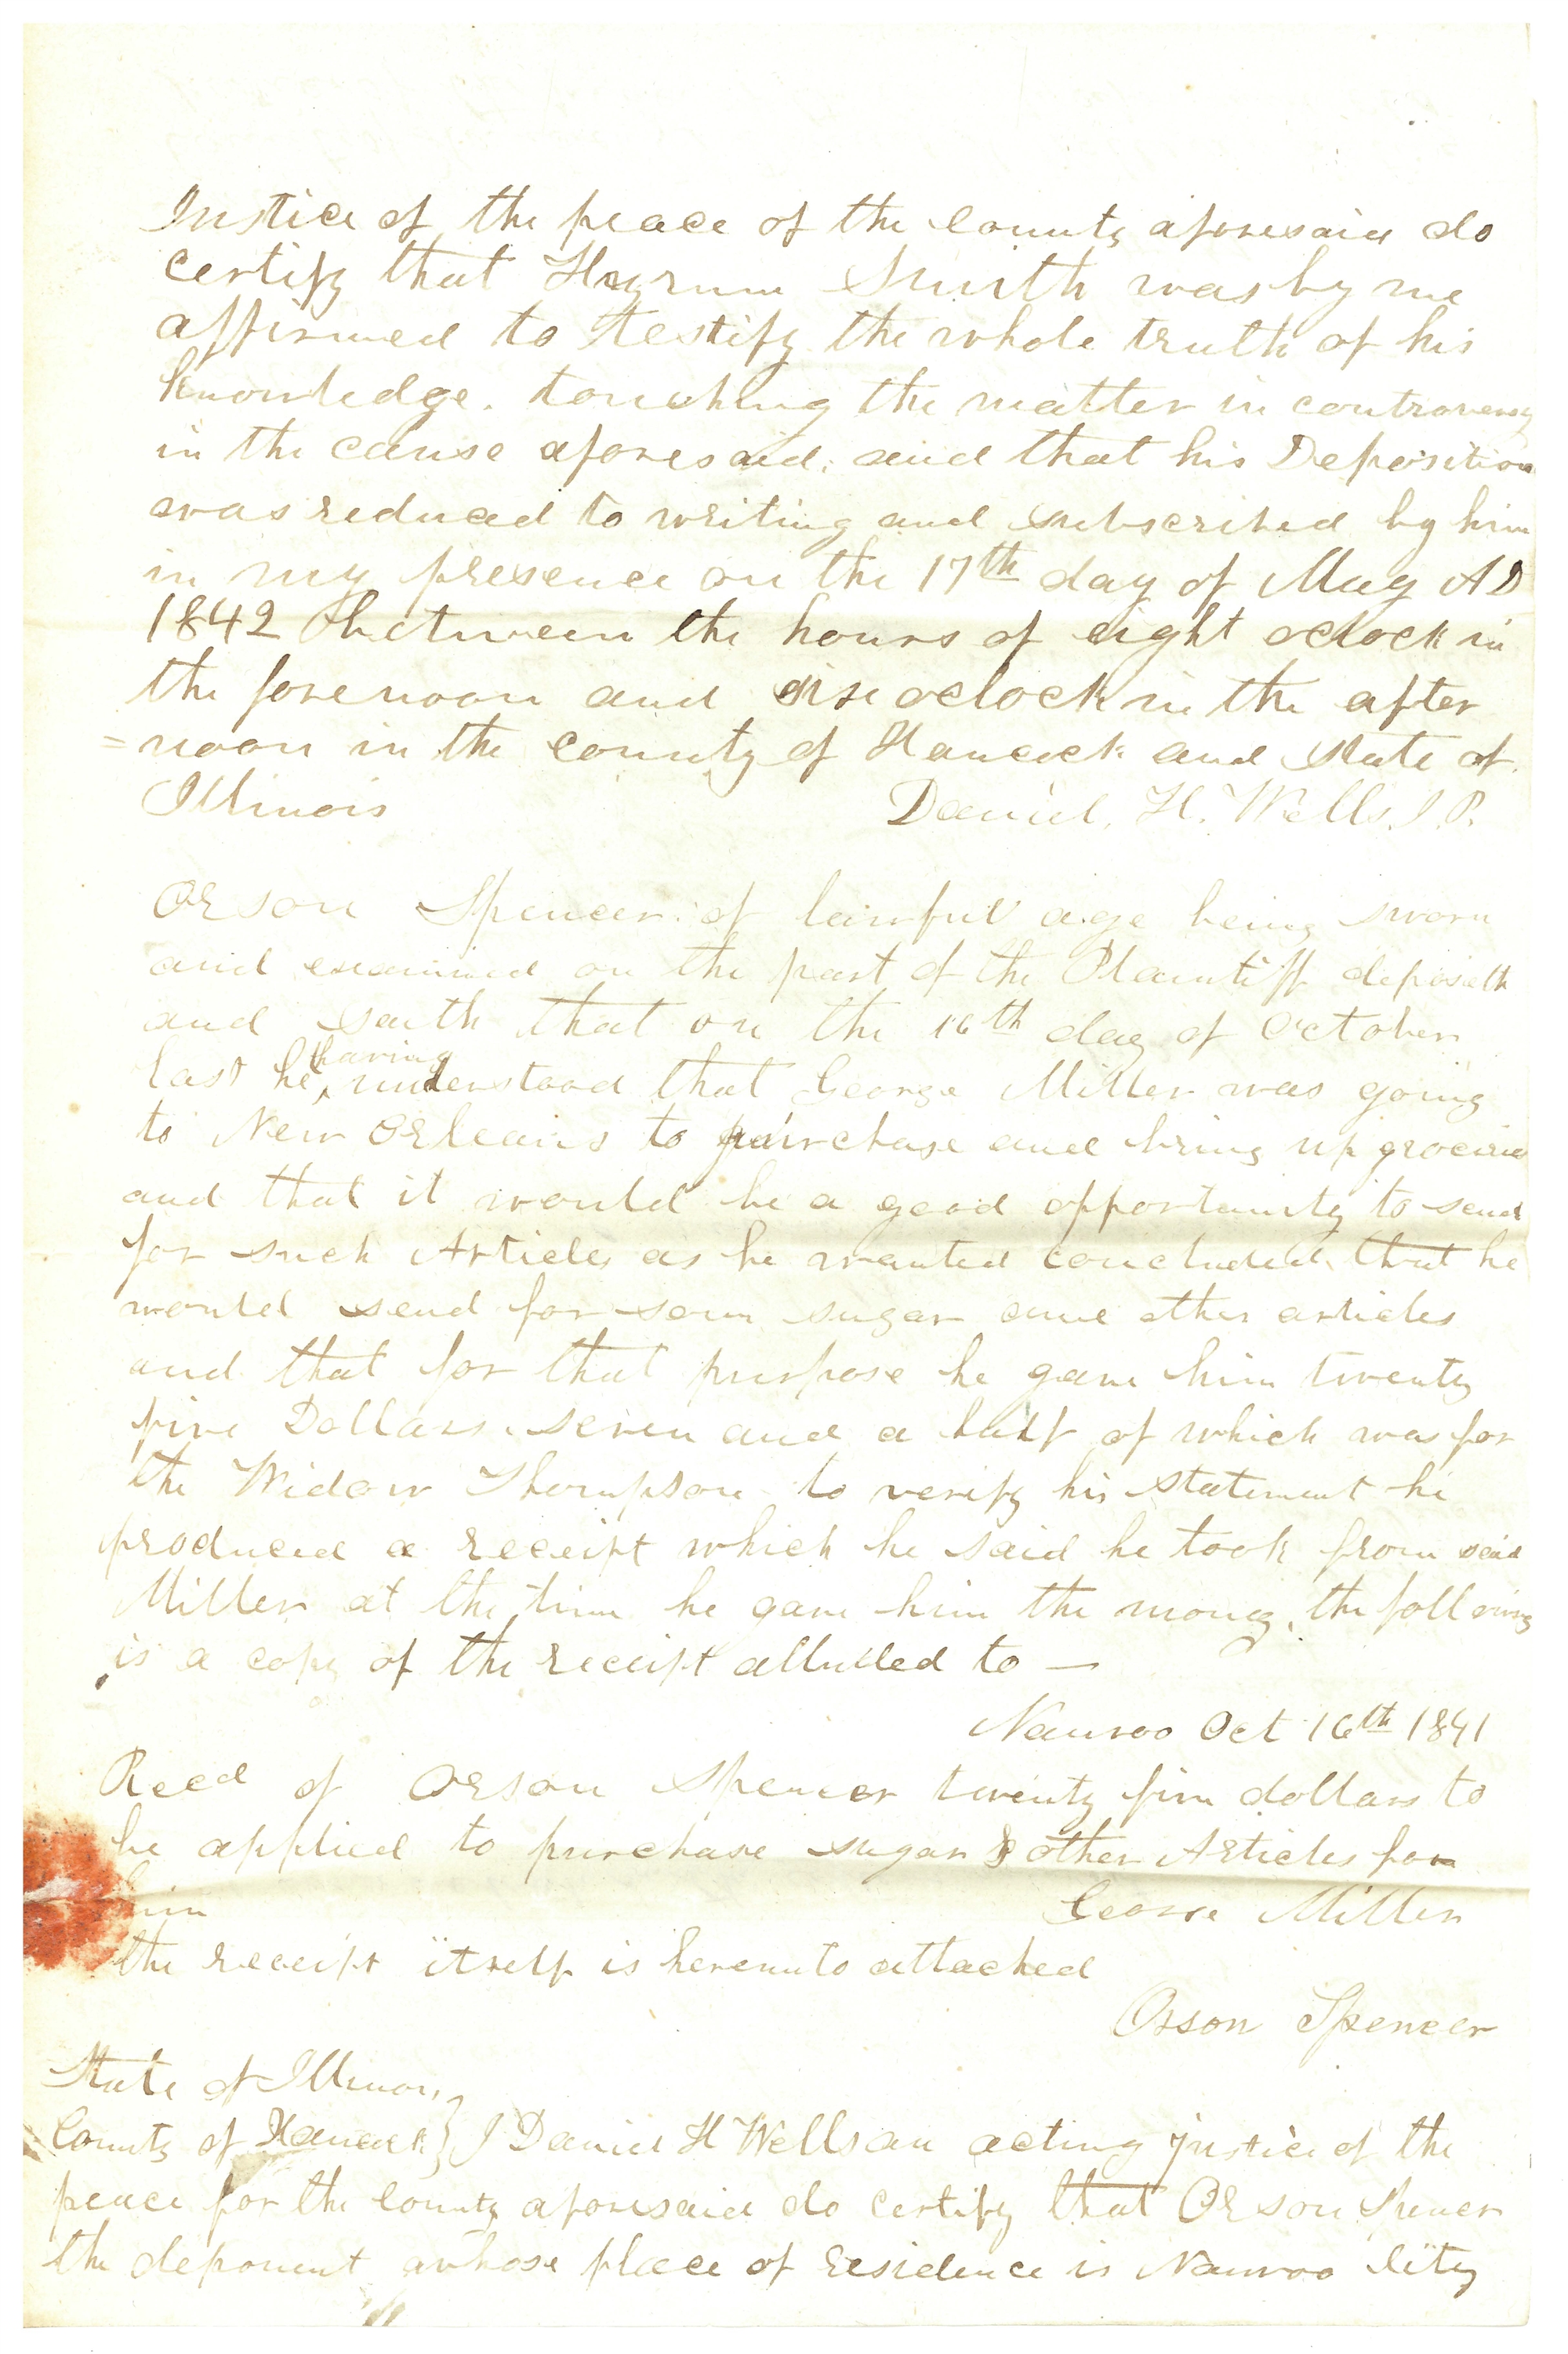 Justice of the peace of the County aforesaid do
certify that Hyrum Smith was by me
affirmed to testify the whole truth of his
knowledge. touching the matter in controversy
in the cause aforesaid. and that his Deposition
was reduced to writing and subscribed by him
in my presence on the 17th day of May AD
1842 between the hours of eight oclock in
the forenoon and six oclock in the after
=noon in the county of Hancock and State of
Illinois Daniel. H. Wells. J. P.
Orson Spencer. of lawful age being sworn
and examined on the part of the Plaintiff deposeth
and saith that on the 16th day of October
last he having understood that George Miller was going
to New Orleans to purchase and bring up groceries
and that it would be a good opportunity to send
for such Articles as he wanted concluded that he
would send for som sugar and other articles
and that for that purpose he gave him twenty
five Dollars. seven and a half of which was for
the Widow Thompson to verify his statement he
produced a receipt which he said he took from said
Miller at the time he gave him the money, the following
is a copy of the receipt alluded to —
Nauvoo Oct 16th 1841
Recd of Orson Spencer twenty five dollars to
be applied to purchase sugar & other Articles for
him George Miller
the receipt itself is hereunto attached
Orson Spencer
State of Illinois
County of Hancock } I Daniel H Wells an acting justice of the
peace for the County aforesaid do certify that Orson Spencer
the deponent whose place of residence is Nauvoo City